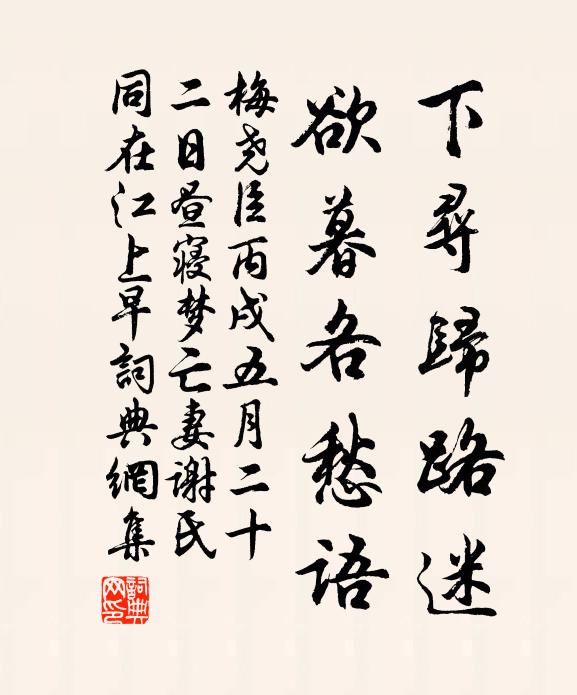 下尋歸路迷
欲暮各愁語
梅尧臣丙戌五月二十
二日昼寝梦亡妻谢氏
同在江上早詞典網集
詞典
网印